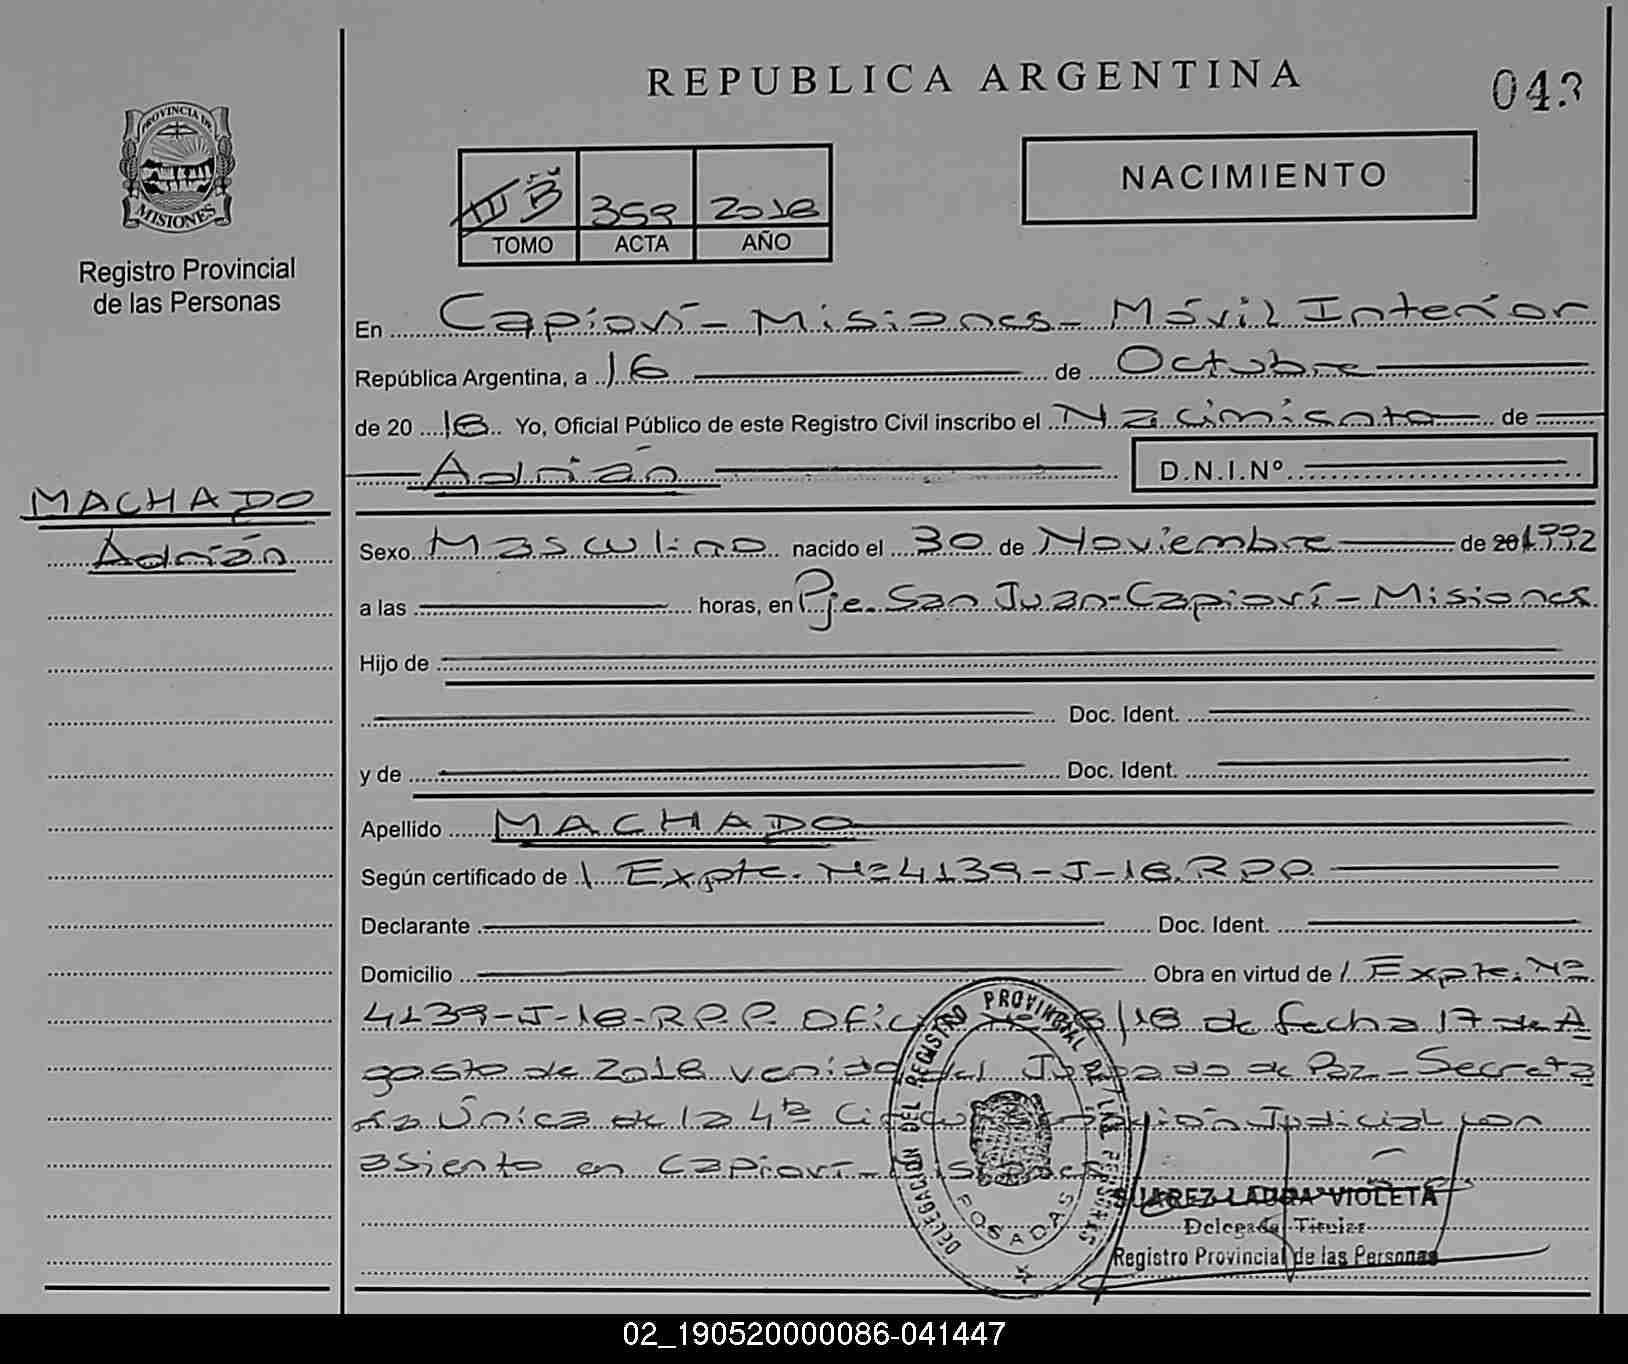 REPUBLICA ARGENTINA
043
PROVINCIA DE
MISIONES
Registro Provincial
de las Personas
NACIMIENTO
III B 359 2018
TOMO ACTA AÑO
En Capioví - Misiones - Móvil Interior
República Argentina, a 16 de Octubre
de 20 18 Yo, Oficial Público de este Registro Civil inscribo el Nacimiento de
Adrián D.N.I.Nº
MACHADO
Adrián
Sexo Masculino nacido el 30 de Noviembre de 1992
a las horas, en Pje. San Juan - Capioví - Misiones
Hijo de
Doc. Ident.
y de Doc. Ident.
Apellido MACHADO
Según certificado de / Expte. Nº 4139-J-18. R.P.P.
Declarante Doc. Ident.
Domicilio Obra en virtud de / Expte. Nº
4139-J-18-R.P.P. 8/18 de fecha 17 de A
gosto de 2018 venido del Juzgado de Paz - Secreta
ría Única de la 4ta Judicial con
asiento en Capioví - Misiones
DELEGACION DEL REGISTRO PROVINCIAL DE LAS PERSONAS
POSADAS
SUAREZ LAURA VIOLETA
Delegada Titular
Registro Provincial de las Personas
02_190520000086-041447